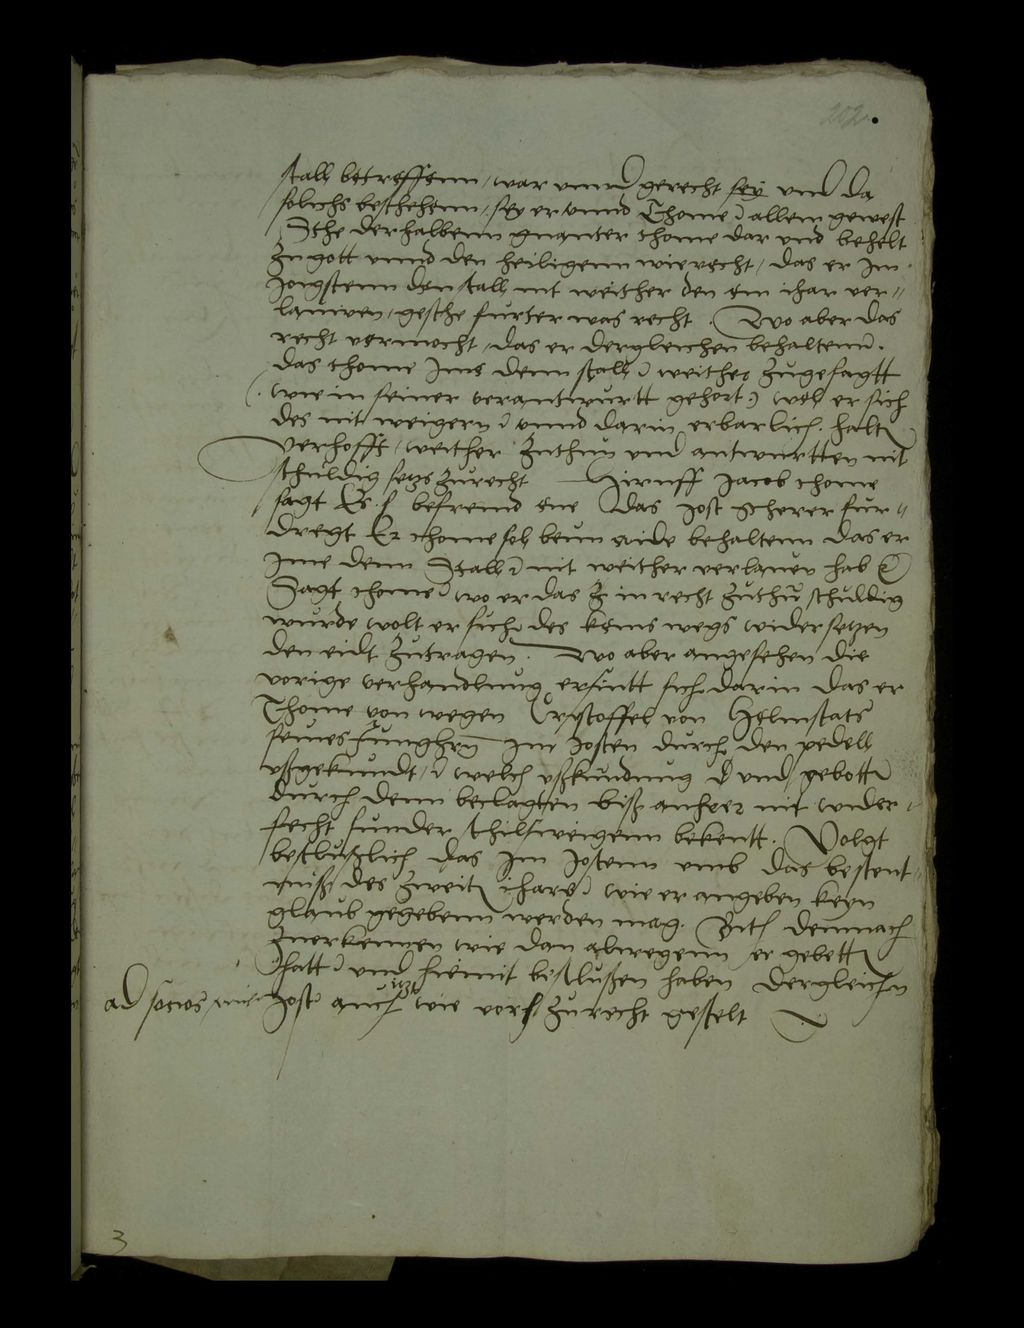 202.
stall betreffenn, war unnd gerecht sey und da
solichs beschehenn, sey er unnd Thome allein gewest
Sthe derhalbenn gnanter thome dar und behelt
zu gott unnd den heiligenn wie recht, das er im
jongstenn den stall nit weither den ein ihar ver-
lauwen, geschehe furter was recht. Wo aber das
recht vermocht, das er dergleichen behaltenn.
das thome Ime denn stall weither zugesagtt
(. wie in seiner verantwurtt gehort .) wol er sich
des nit weigern unnd darin erbarlich halt
verhofft, weither zuthun und antwurtten nit
schuldig setzs zurecht Hiruff Jacob thome
sagt Es befremd ene das Jost scherer fur-
dregt Er thome sol beim aide behaltenn das er
Ime denn Stall nit weither verlauen hab
Sagt thome wo er das in recht zuthu schuldig
wurde wolt er sich des keins wegs widersetzen
den eidt zutragen. Wo aber angesehen die
vorige verhandlung erfintt sich darin das er
Thome von wegen Cristoffel von Helmstats
seines Junghern im Josten durch den pedell
ußgekundt, welch ußkundung und gebott
durch denn beclagten biß anher nit wider-
fecht sunder stilsweigenn bekentt. Volgt
beslußlich das im Jostenn umb das bestent-
niß des zweit ihars wie er angeben keyn
glaub gegebenn werden mag. Bith demnach
zuerkennen wie dan alwegenn er gebett
hatt und hiemit beslußen haben dergleichen
ad socios Jost auch itzt wie vor zu recht gestelt
3